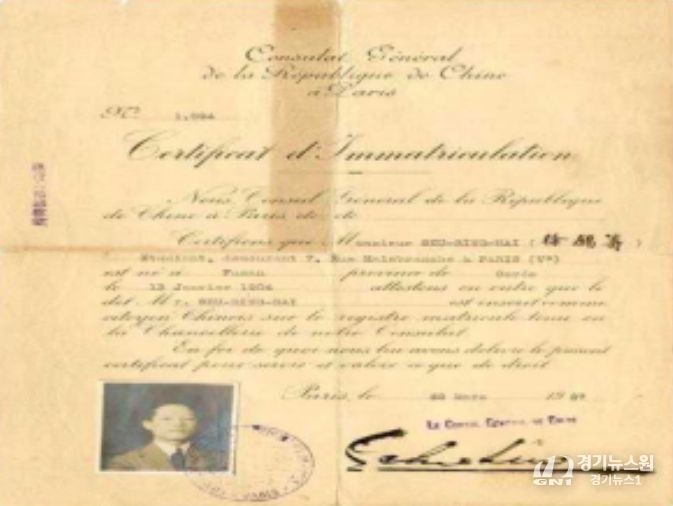 Consulat Général
de la République de Chine
à Paris
No
Certificat d'Immatriculation
Nous, Consul Général de la République
de Chine à Paris
Certifions que Monsieur SEU-RING-HAI (徐嶺海)
Etudiant, demeurant 7, Rue Malebranche à PARIS (Ve)
est né à Fusan province de Corée
le 13 Janvier 1904 attestons en outre que le
dit Mr. SEU-RING-HAI est inscrit comme
citoyen Chinois sur le registre matricule tenu en
la Chancellerie de notre Consulat.
En foi de quoi nous lui avons délivré le présent
certificat pour servir et valoir ce que de droit.
Paris, le Mars 19
Le Consul Général de Chine
경기뉴스원
GN1 경기뉴스1